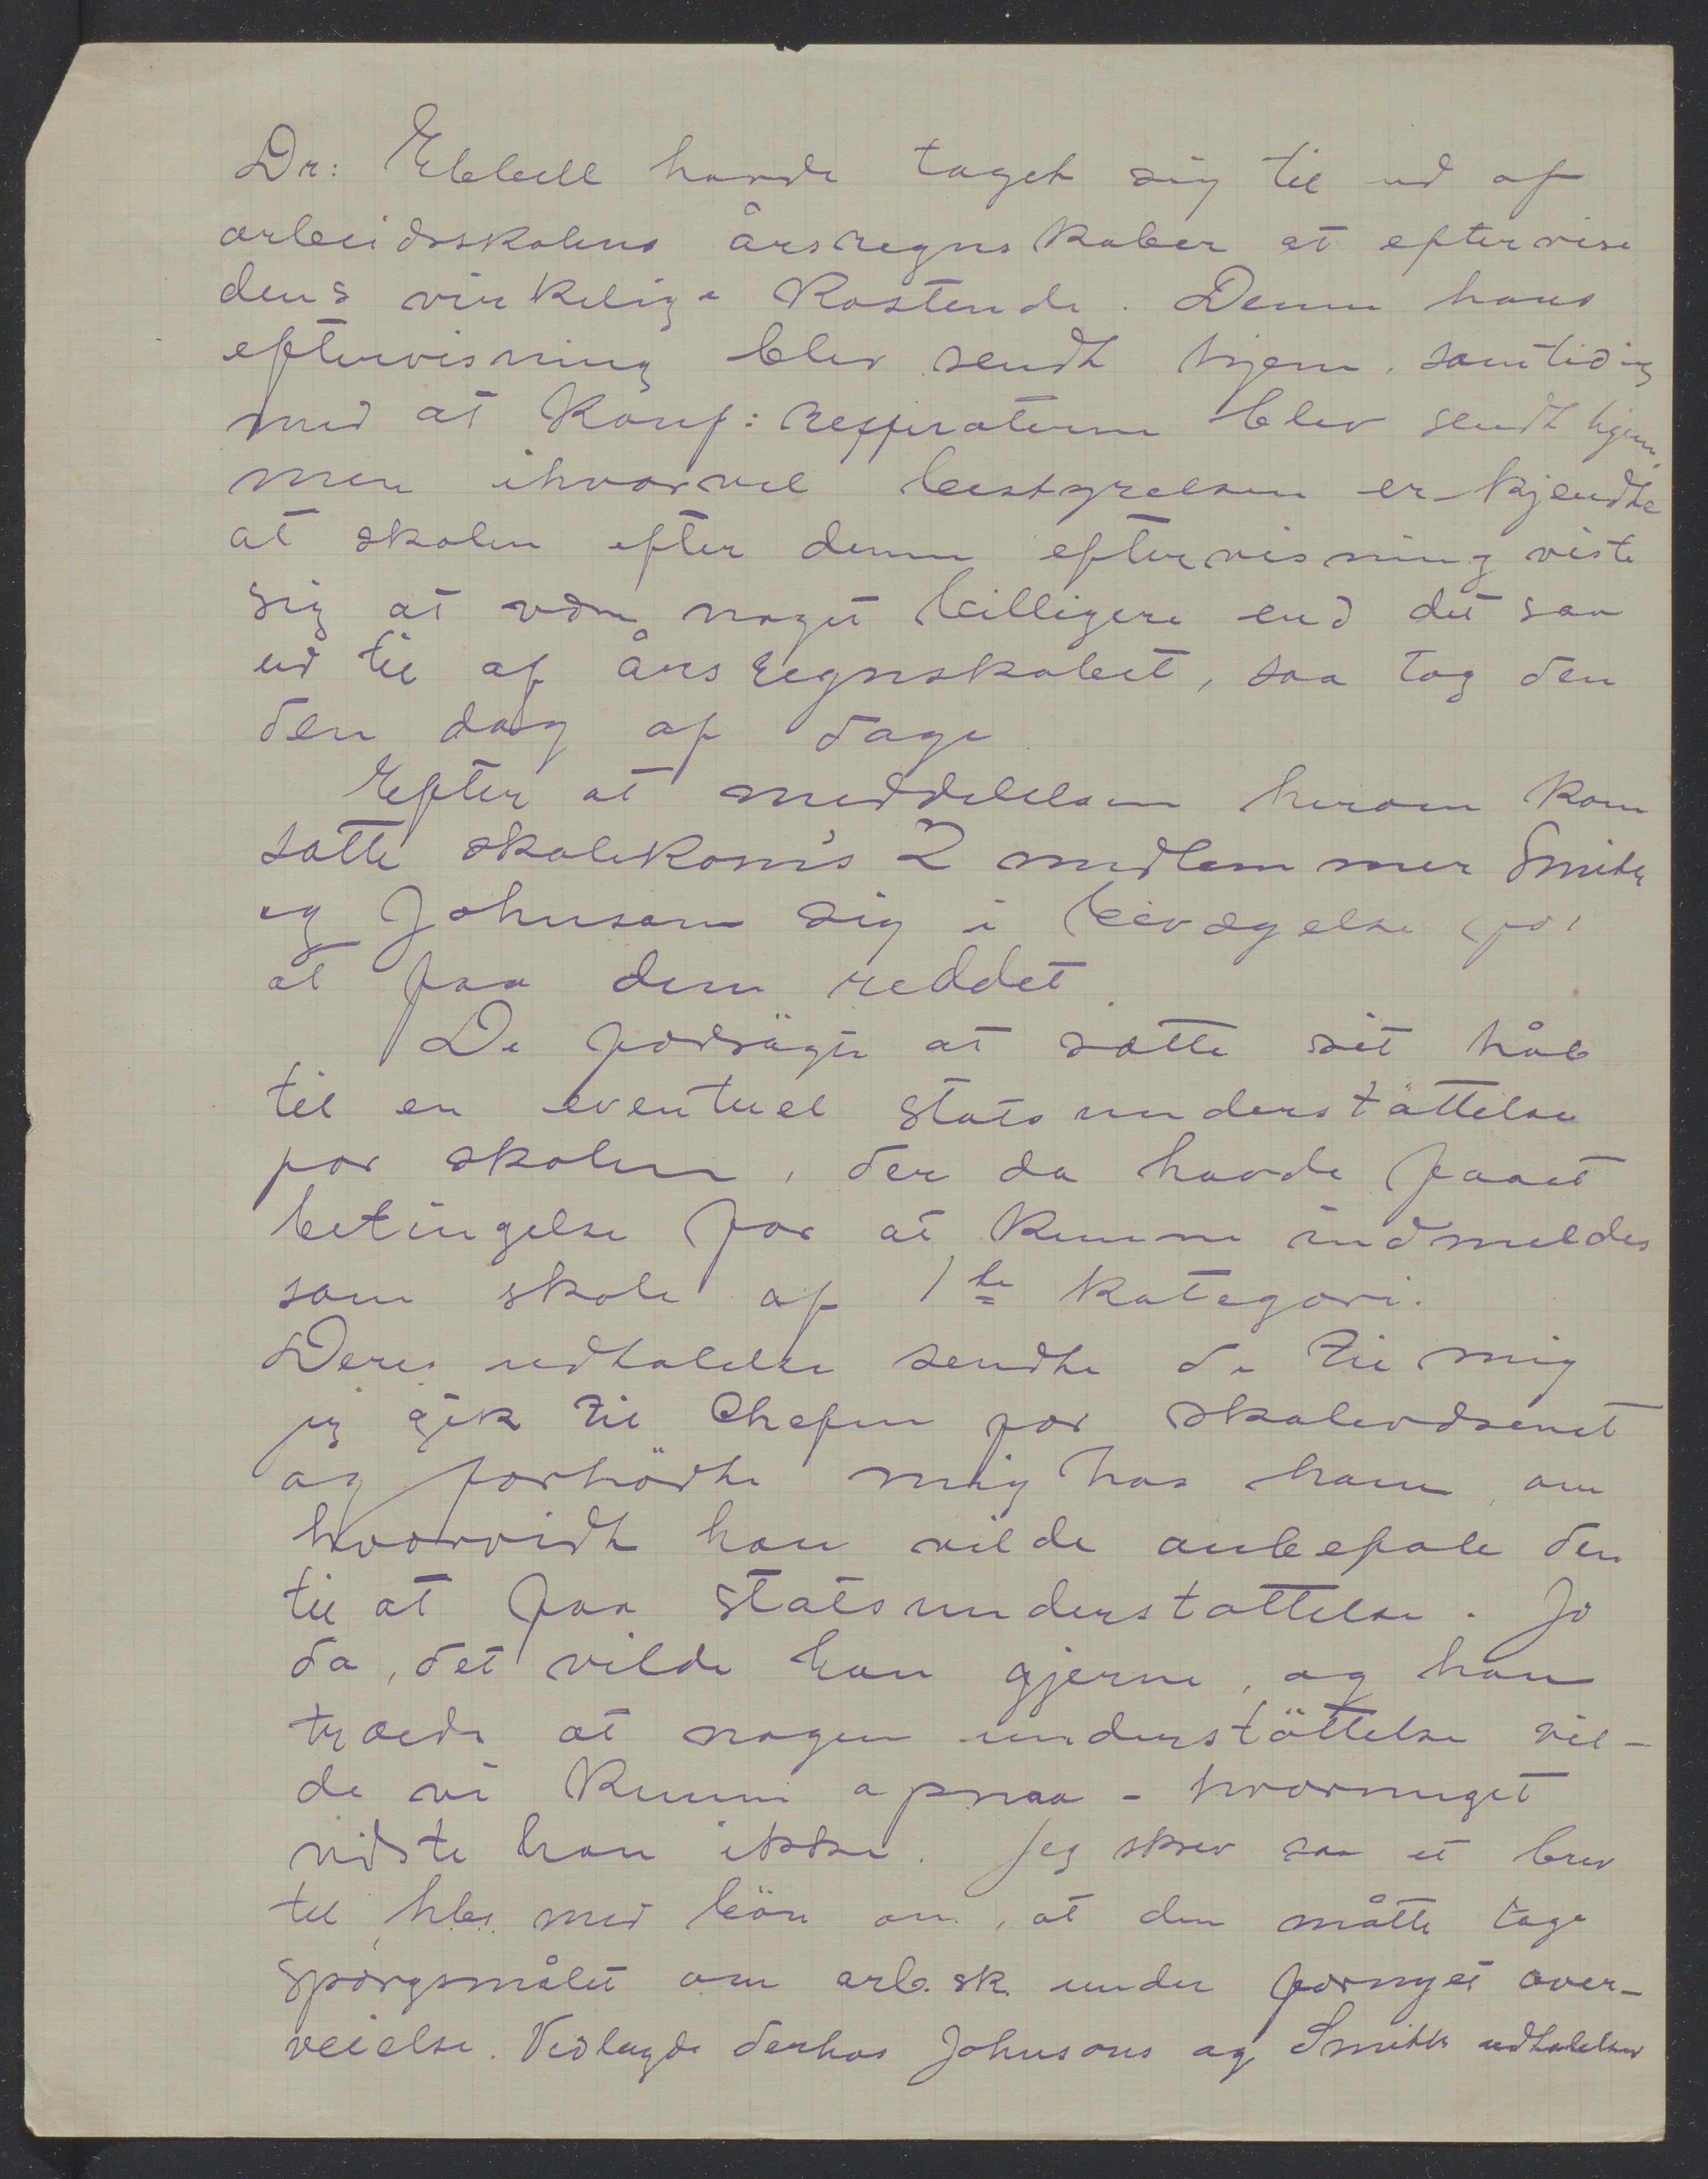 Dr: Ebbell havde taget sig til ud af
arbeidsskolens årsregnskaber at eftervise
dens virkelige Kostende. Denne hans
eftervisning blev sendt hjem, samtidig
med at Konf: refferaterne blev sendt hjem,
men ihvorvel bestyrelsen erkjendte
at skolen efter denne eftervisning viste
sig at være noget billigere end det saa
ud til af årsregnskabet, saa tog den
den dog af dage
Efter at meddelelsen herom kom
satte skolekom's 2 medlemmer Smith
og Johnson sig i bevægelse for
at faa den reddet.
De forsögte at sætte sit håb
til en eventuel statsunderstöttelse
for skolen, der da havde faaet
betingelse for at kunne indmeldes
som skole af 1ste kategori.
Deres udtalelse sendte de til mig
jeg gik til Chefen for skolevæsenet
og forhördte mig hos ham, om
hvorvidt han vilde anbefale den
til at faa statsunderstøttelse. Jo
da, det vilde han gjerne, og han
troede at nogen understöttelse vil-
de vi kunne opnaa - hvormeget
vidste han ikke. Jeg skrev saa et brev
til hbs. med bön om, at den måtte tage
spörgsmålet om arb.sk. under fornyet over-
veielse. Vedlagde derhos Johnsons og Smiths udtalelser